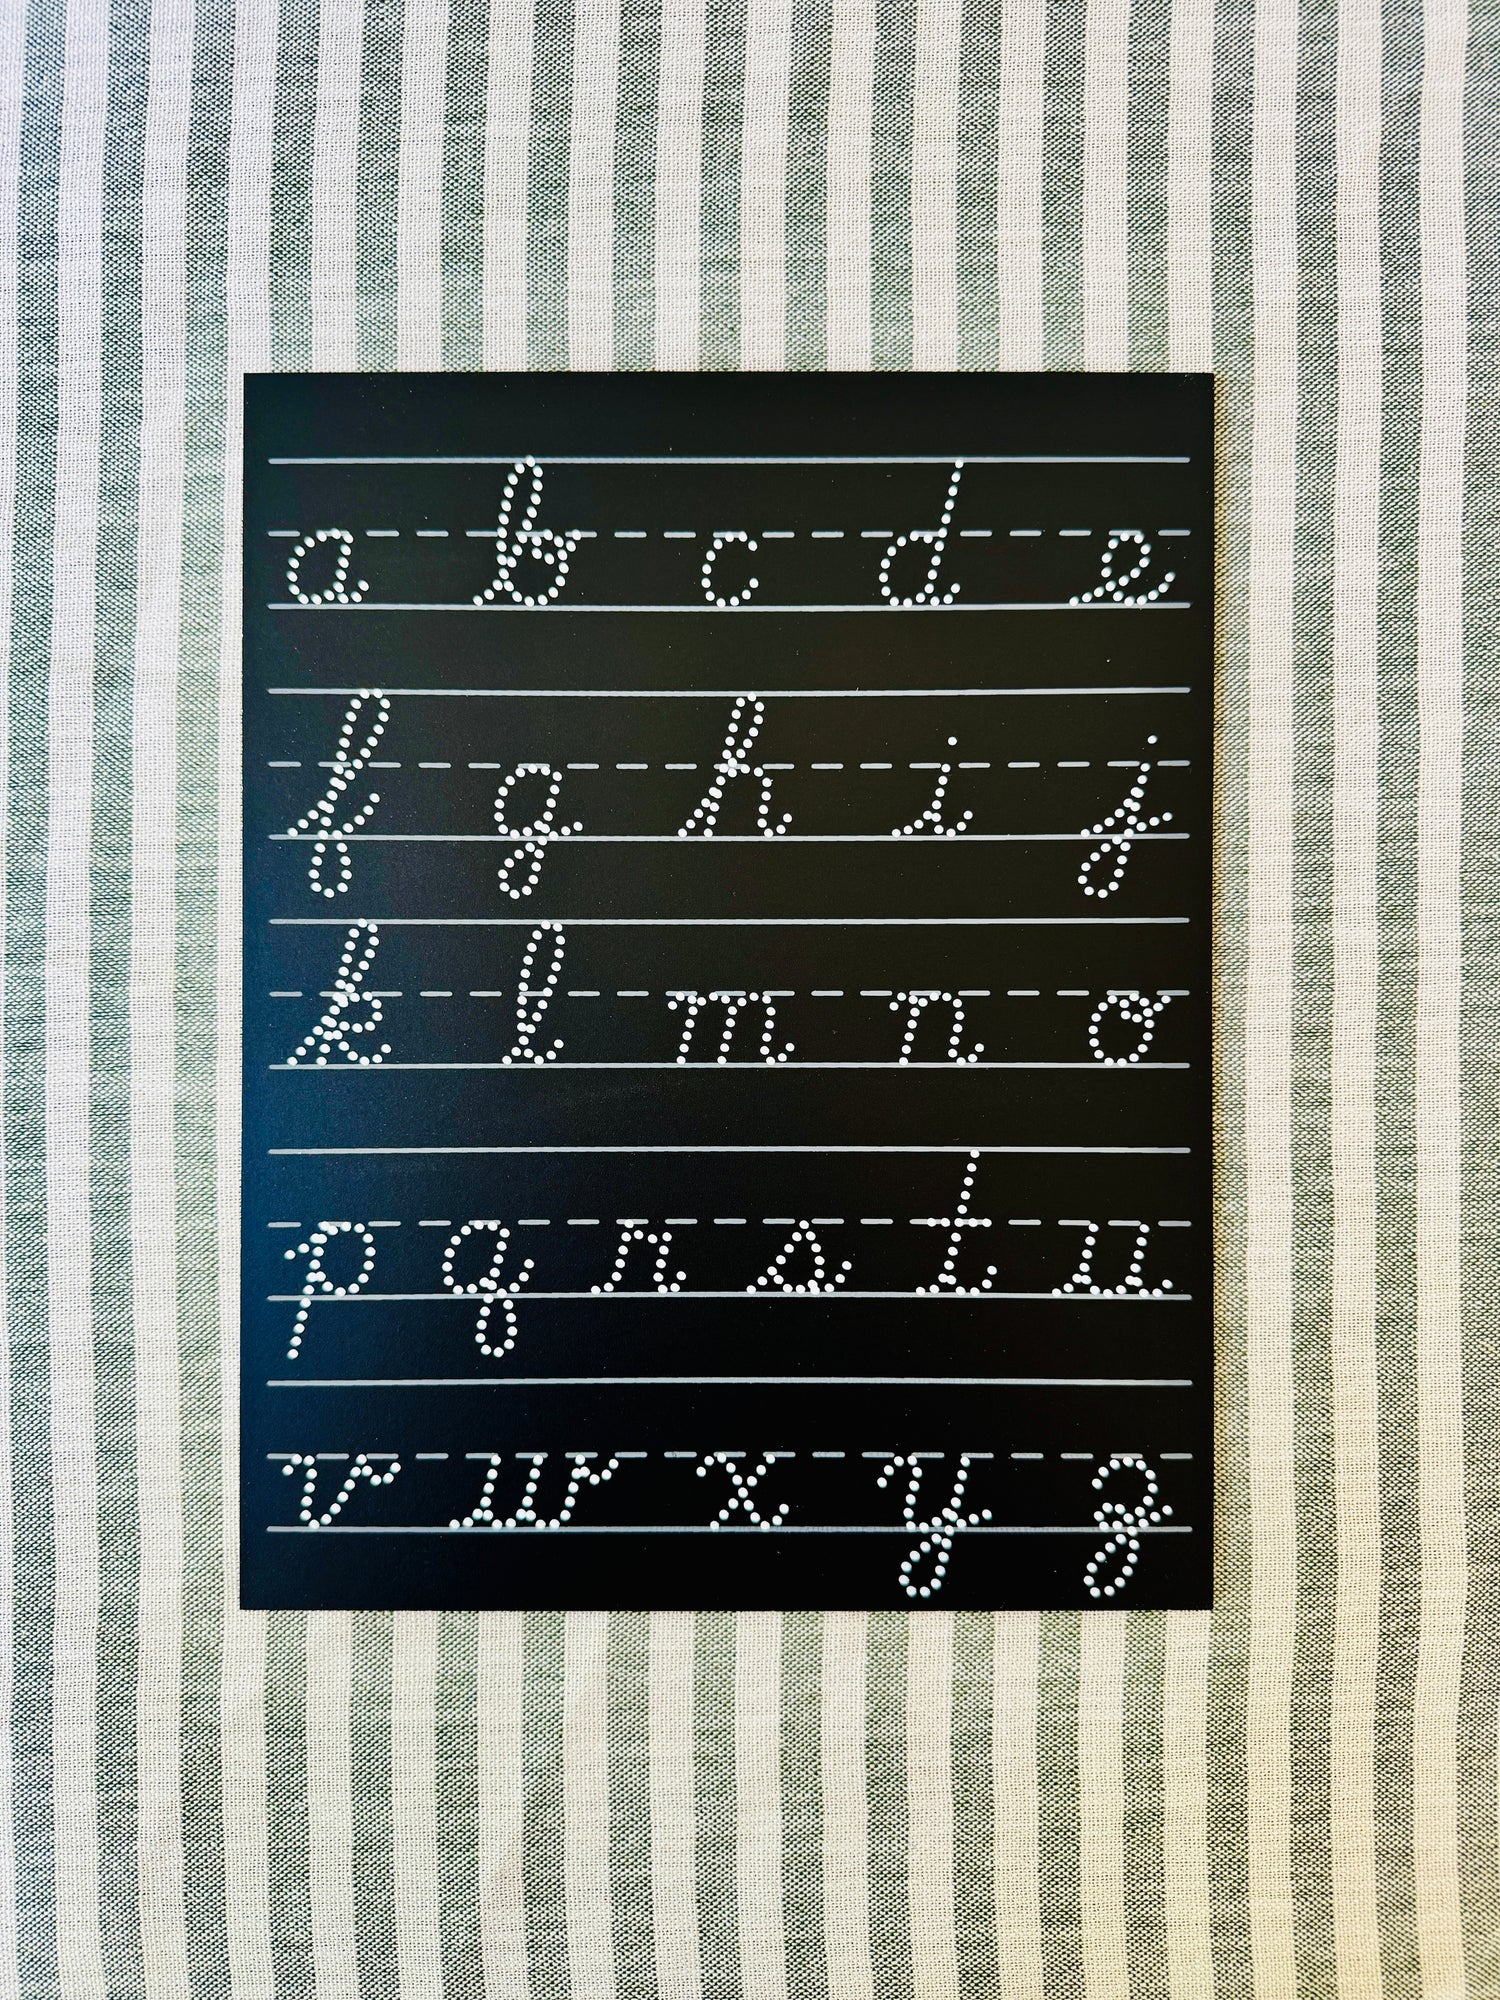 a b c d e
f g h i j
k l m n o
p q r s t u
v w x y z